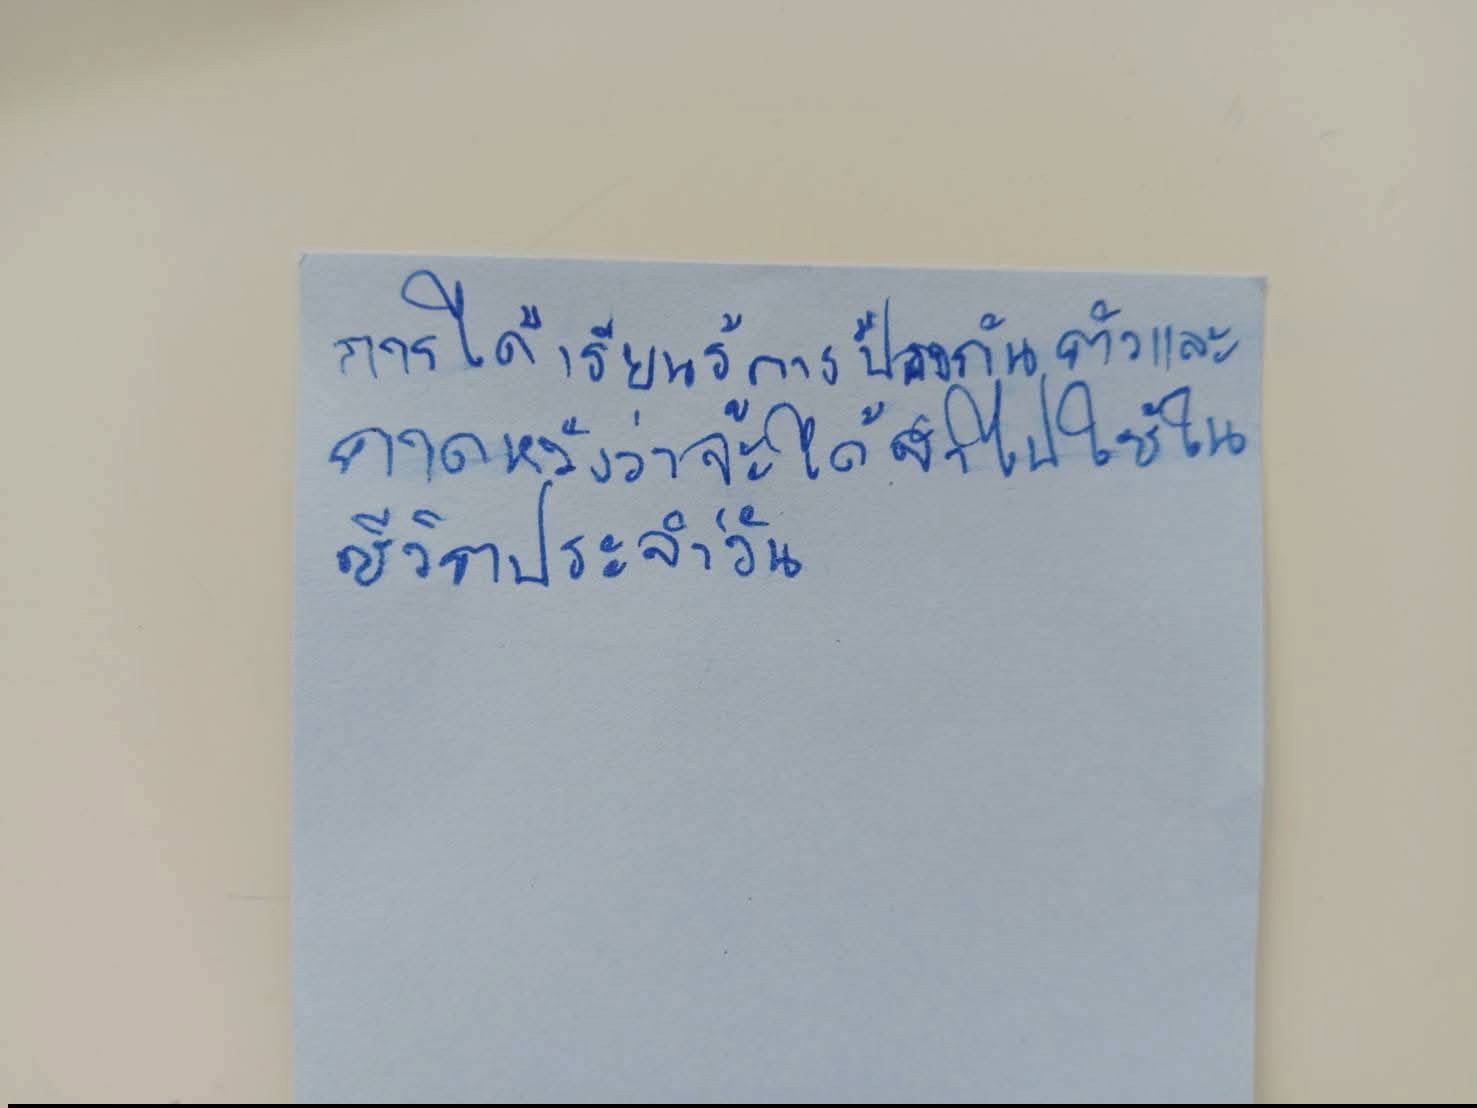 การได้เรียนรู้การป้องกันตัวและ
คาดหวังว่าจะได้นำไปใช้ใน
ชีวิตประจำวัน